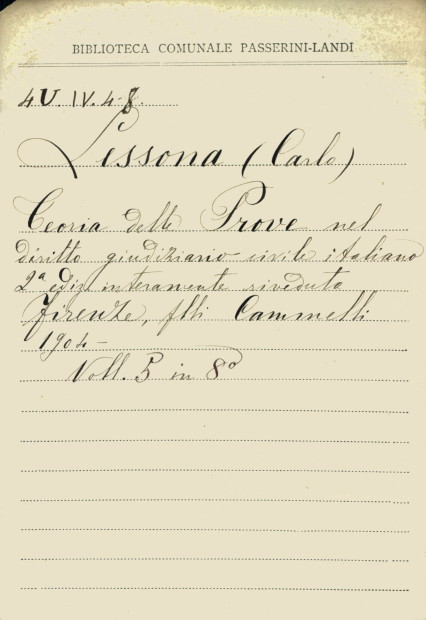 BIBLIOTECA COMUNALE PASSERINI-LANDI
4U. IV. 4-8.
Lessona (Carlo)
Teoria delle Prove nel
diritto giudiziario civile italiano
2ª ediz. interamente riveduta
Firenze, flli Cammelli
1904-
Voll. 5 in 8º